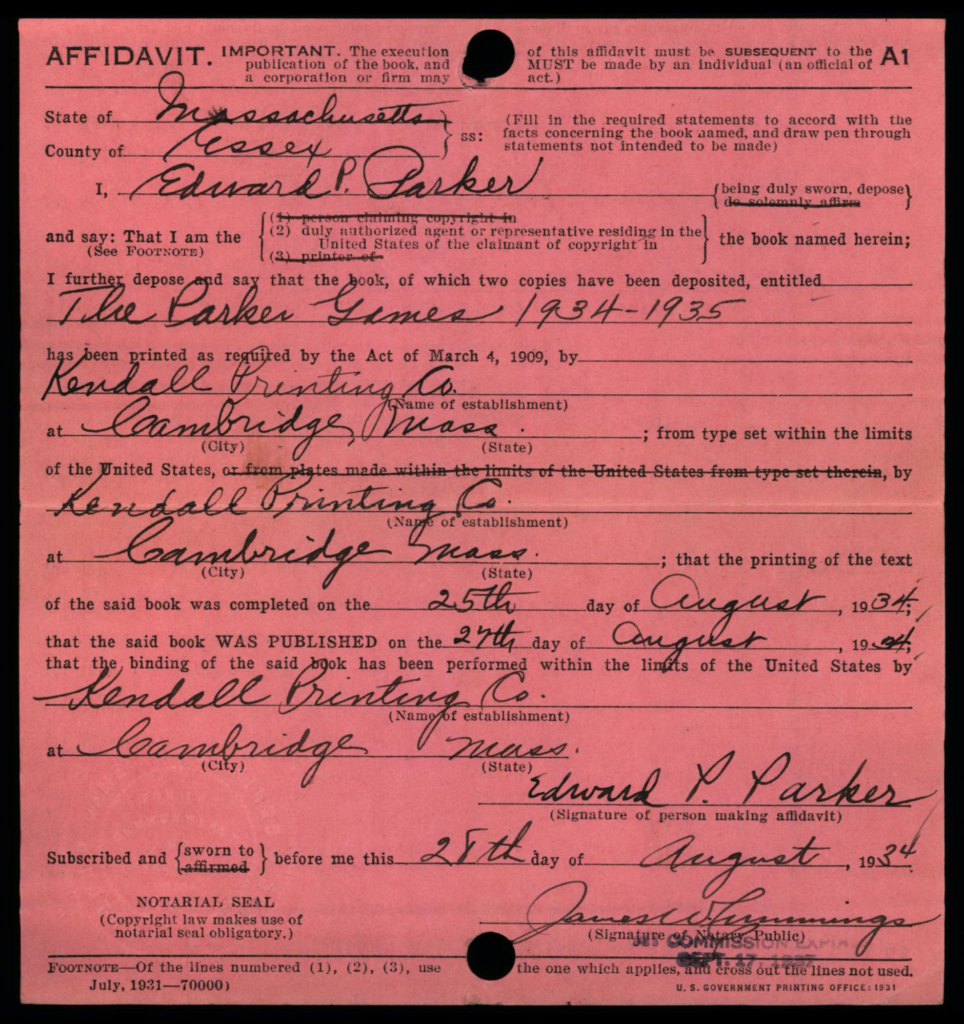 AFFIDAVIT. IMPORTANT. The execution of this affidavit must be SUBSEQUENT to the A1
publication of the book, and MUST be made by an individual (an official of
a corporation or firm may act.)
State of Massachusetts
County of Essex
ss:
(Fill in the required statements to accord with the
facts concerning the book named, and draw pen through
statements not intended to be made)
I, Edward P. Parker {being duly sworn, depose}
do solemnly affirm
and say: That I am the
(See FOOTNOTE)
(1) person claiming copyright in
(2) duly authorized agent or representative residing in the
United States of the claimant of copyright in
(3) printer of
the book named herein;
I further depose and say that the book, of which two copies have been deposited, entitled
The Parker Games 1934-1935
has been printed as required by the Act of March 4, 1909, by
Kendall Printing Co.
(Name of establishment)
at Cambridge, Mass. ; from type set within the limits
(City) (State)
of the United States, or from plates made within the limits of the United States from type set therein, by
Kendall Printing Co
(Name of establishment)
at Cambridge Mass. ; that the printing of the text
(City) (State)
of the said book was completed on the 25th day of August, 1934;
that the said book WAS PUBLISHED on the 27th day of August, 1934,
that the binding of the said book has been performed within the limits of the United States by
Kendall Printing Co.
(Name of establishment)
at Cambridge Mass.
(City) (State)
Edward P. Parker
(Signature of person making affidavit)
Subscribed and {sworn to affirmed} before me this 28th day of August, 1934
NOTARIAL SEAL
(Copyright law makes use of
notarial seal obligatory.)
James W. Cummings
(Signature of Notary Public)
COMMISSION
SEPT. 17, 1937
FOOTNOTE—Of the lines numbered (1), (2), (3), use the one which applies, and cross out the lines not used.
July, 1931—70000)
U. S. GOVERNMENT PRINTING OFFICE: 1931